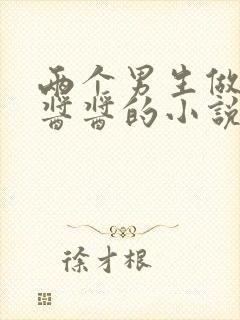 两个男生做
酱酱的小説
徐才根